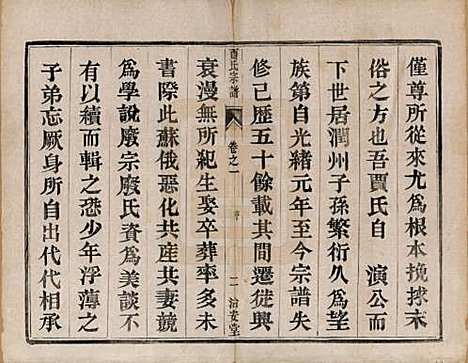 僅尊所從來尤爲根本挽捄末
俗之方也吾賈氏自 演公而
下世居潤州子孫繁衍久爲望
族第自光緒元年至今宗譜失
修已歷五十餘載其間遷徙興
賈氏宗譜 卷之一 序 二 治安堂
衰漫無所紀生娶卒葬率多未
書際此蘇俄惡化共産共妻競
爲學說廢宗廢氏資爲美談不
有以續而輯之恐少年浮薄之
子弟忘厥身所自出代代相承